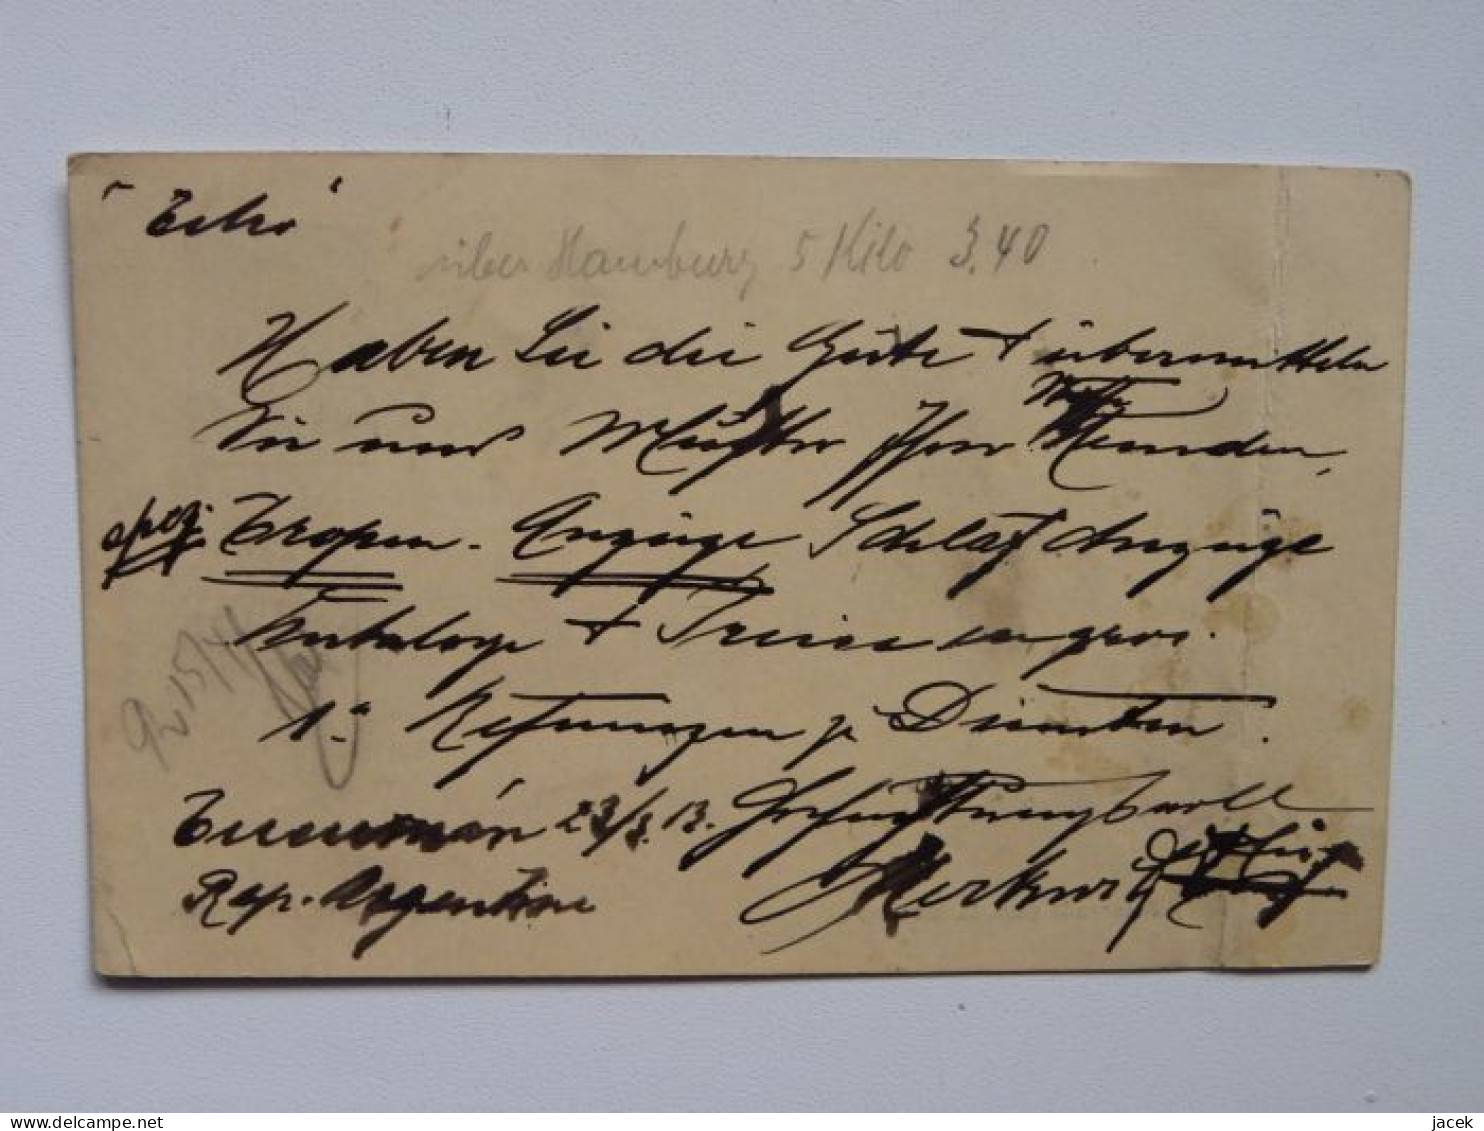 "Echo"
über Hamburg 5 Kilo 3.40
Haben Sie die Güte + übermitteln
Sie uns Muster Ihrer Hemden,
spez. Tropen-Anzüge Schlafanzüge
Kataloge + Preise en gros.
1a Refrenzen z. Diensten.
Tucumán 23/3.13. Hochachtungsvoll
Rep. Argentina Merkur
R 15/4
jacek